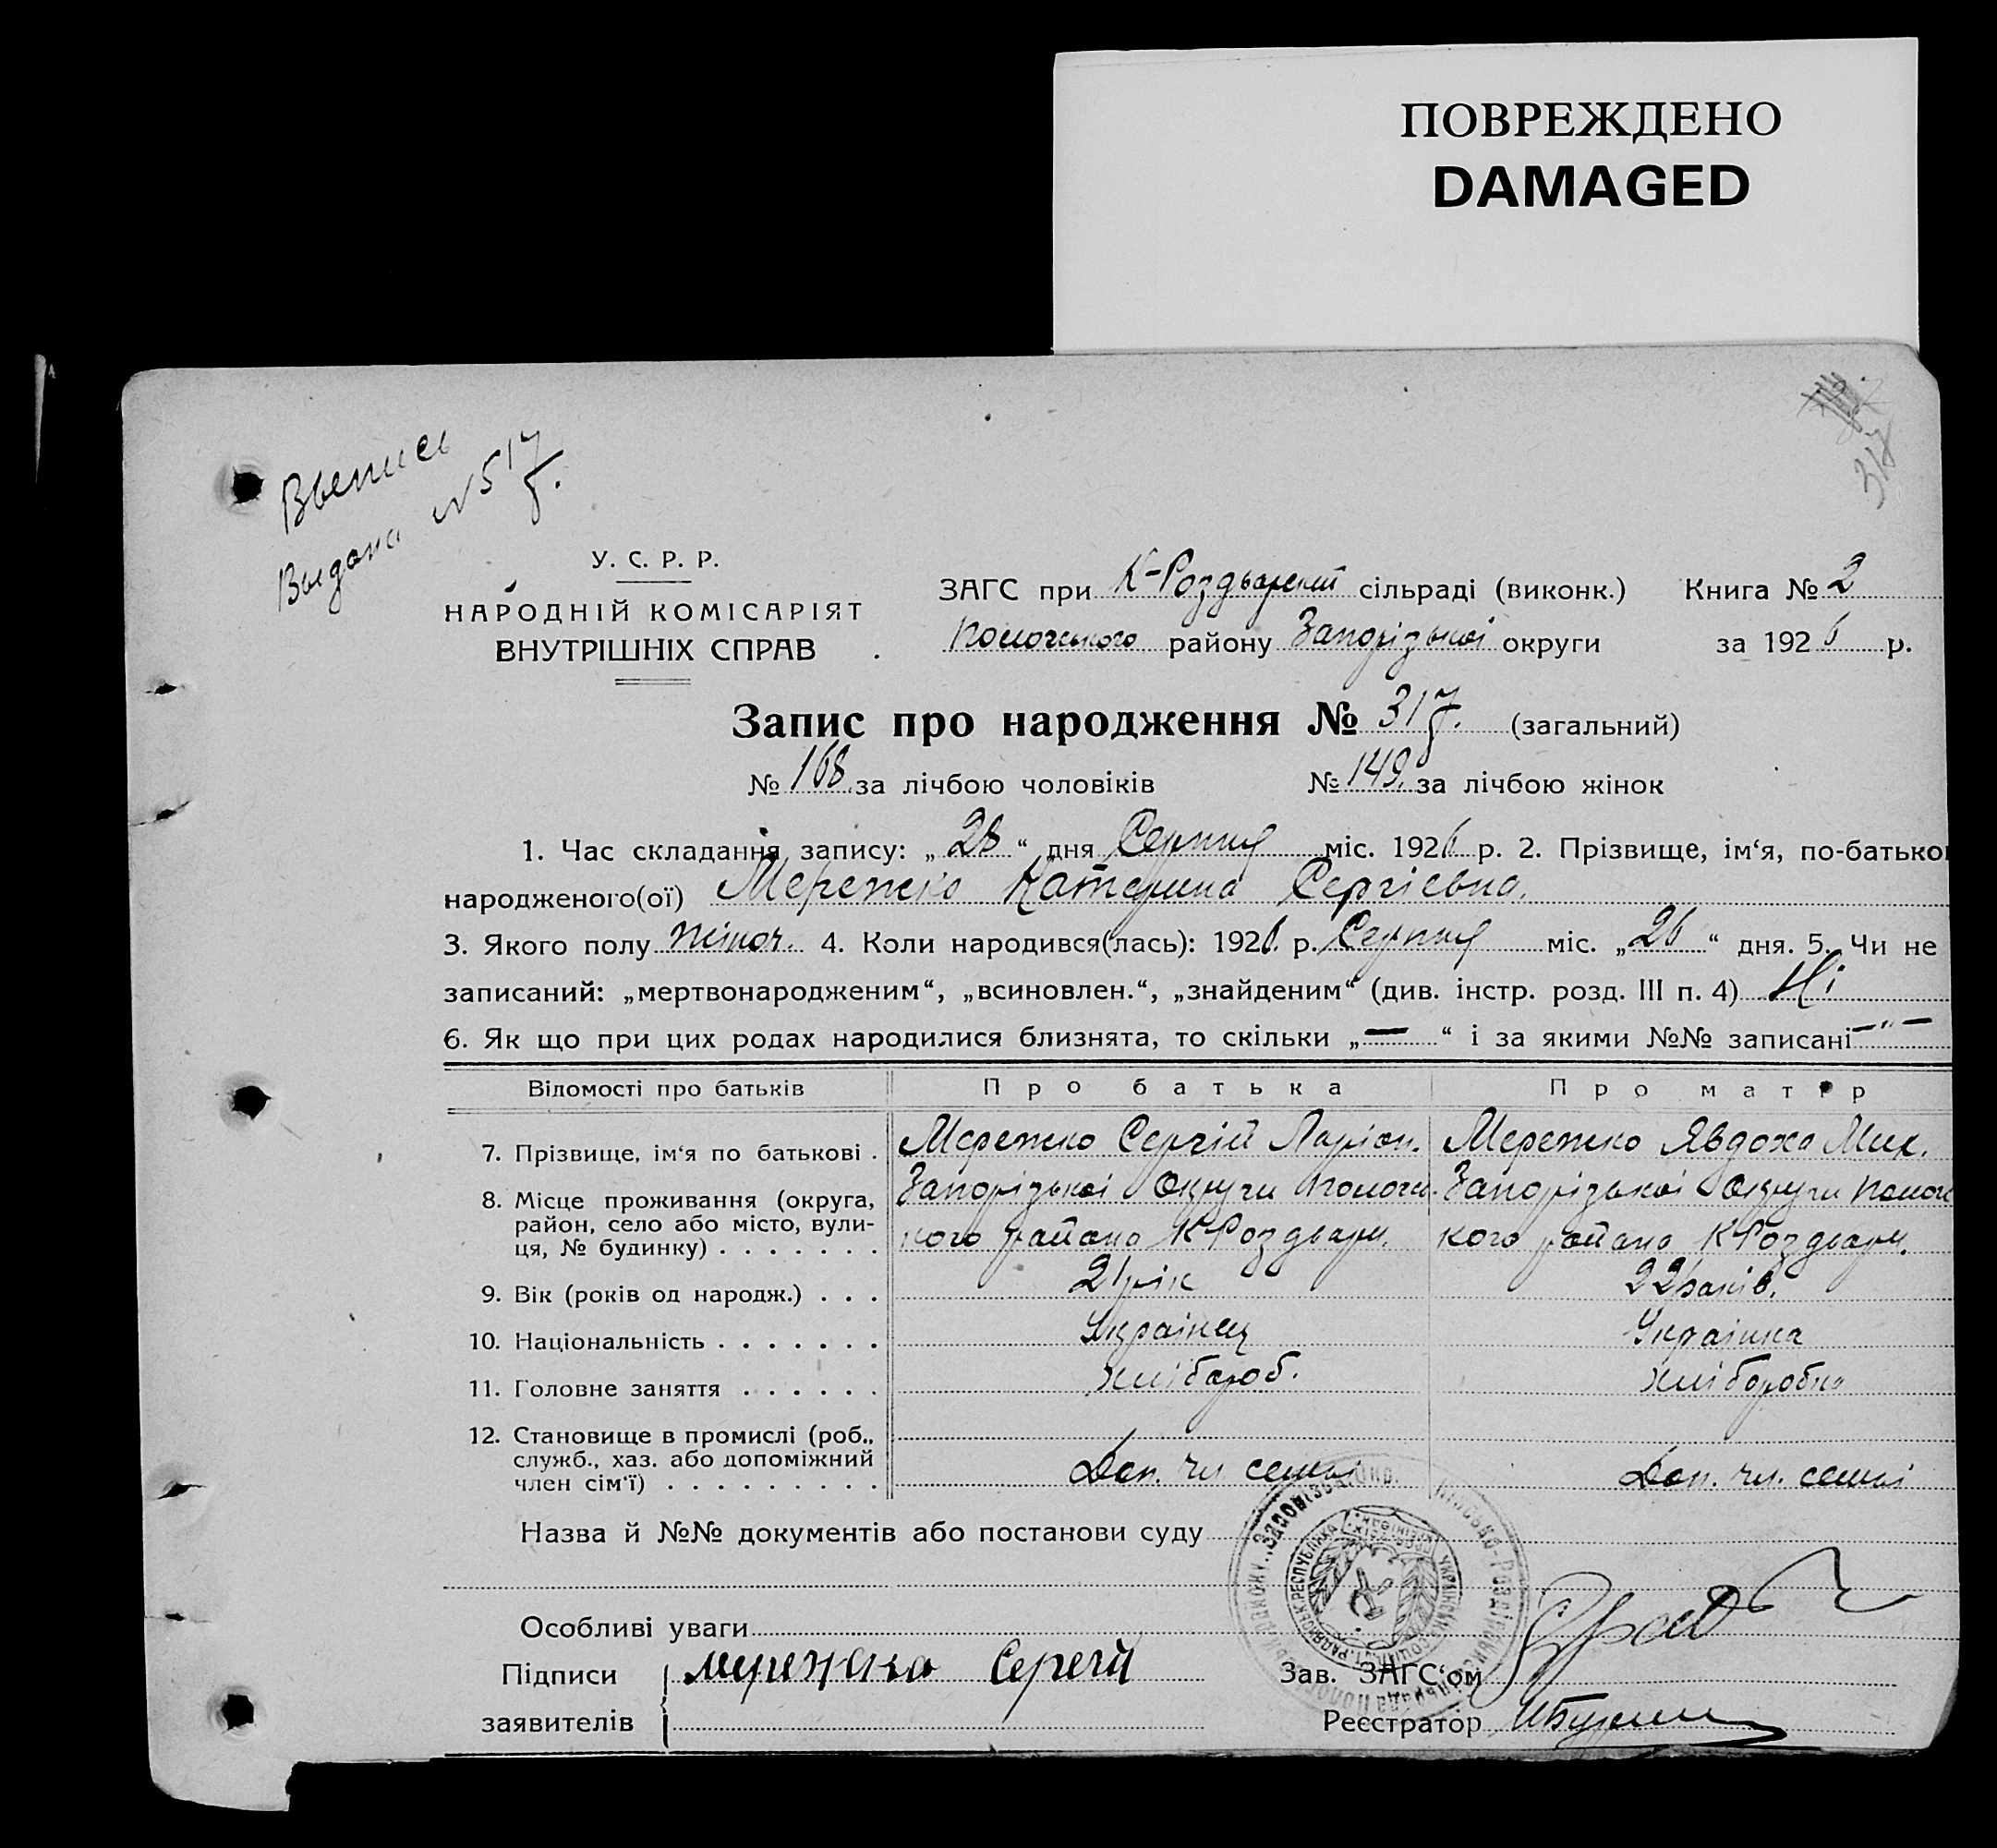 ПОВРЕЖДЕНО
DAMAGED
317
Выпись
Выдана №517.
У. С. Р. Р.
НАРОДНІЙ КОМІСАРІЯТ
ВНУТРІШНІХ СПРАВ
ЗАГС при К-Роздорскій сільраді (виконк.) Книга № 2
Пологського району Запорізької округи за 1926 р.
Запис про народження № 317. (загальний)
№ 168 за лічбою чоловіків № 149. за лічбою жінок
1. Час складання запису: „28“ дня Серпня міс. 1926 р. 2. Прізвище, ім‘я, по-батько
народженого(ої) Мережко Катерина Сергієвна.
3. Якого полу жіноч. 4. Коли народився(лась): 1926. р. Серпня міс. „26“ дня. 5. Чи не
записаний: „мертвонародженим“, „всиновлен.“, „знайденим“ (див. інстр. розд. III п. 4) Ні
6. Як що при цих родах народилися близнята, то скільки „—“ і за якими №№ записані —"—
Відомості про батьків Про батька Про матер
7. Прізвище, ім‘я по батькові . Мережко Сергій Ларіон. Мережко Явдоха Мих.
8. Місце проживання (округа, Запорізької Округи Пологс. Запорізької Округи Полог
район, село або місто, вули-
ця, № будинку) . . . . . . . кого района КРоздори. кого района КРоздори.
9. Вік (років од народж.) . . . 21 рік 22 років.
10. Національність . . . . . . . Українец Українка
11. Головне заняття . . . . . . хлібороб. хліборобка
12. Становище в промислі (роб.,
служб., хаз. або допоміжний
член сім‘ї) . . . . . . . . . Доп. чл. семьі Доп. чл. семьі
Назва й №№ документів або постанови суду
Особливі уваги
Підписи Мережко Сергей Зав. ЗАГС‘ом
заявителів Реєстратор